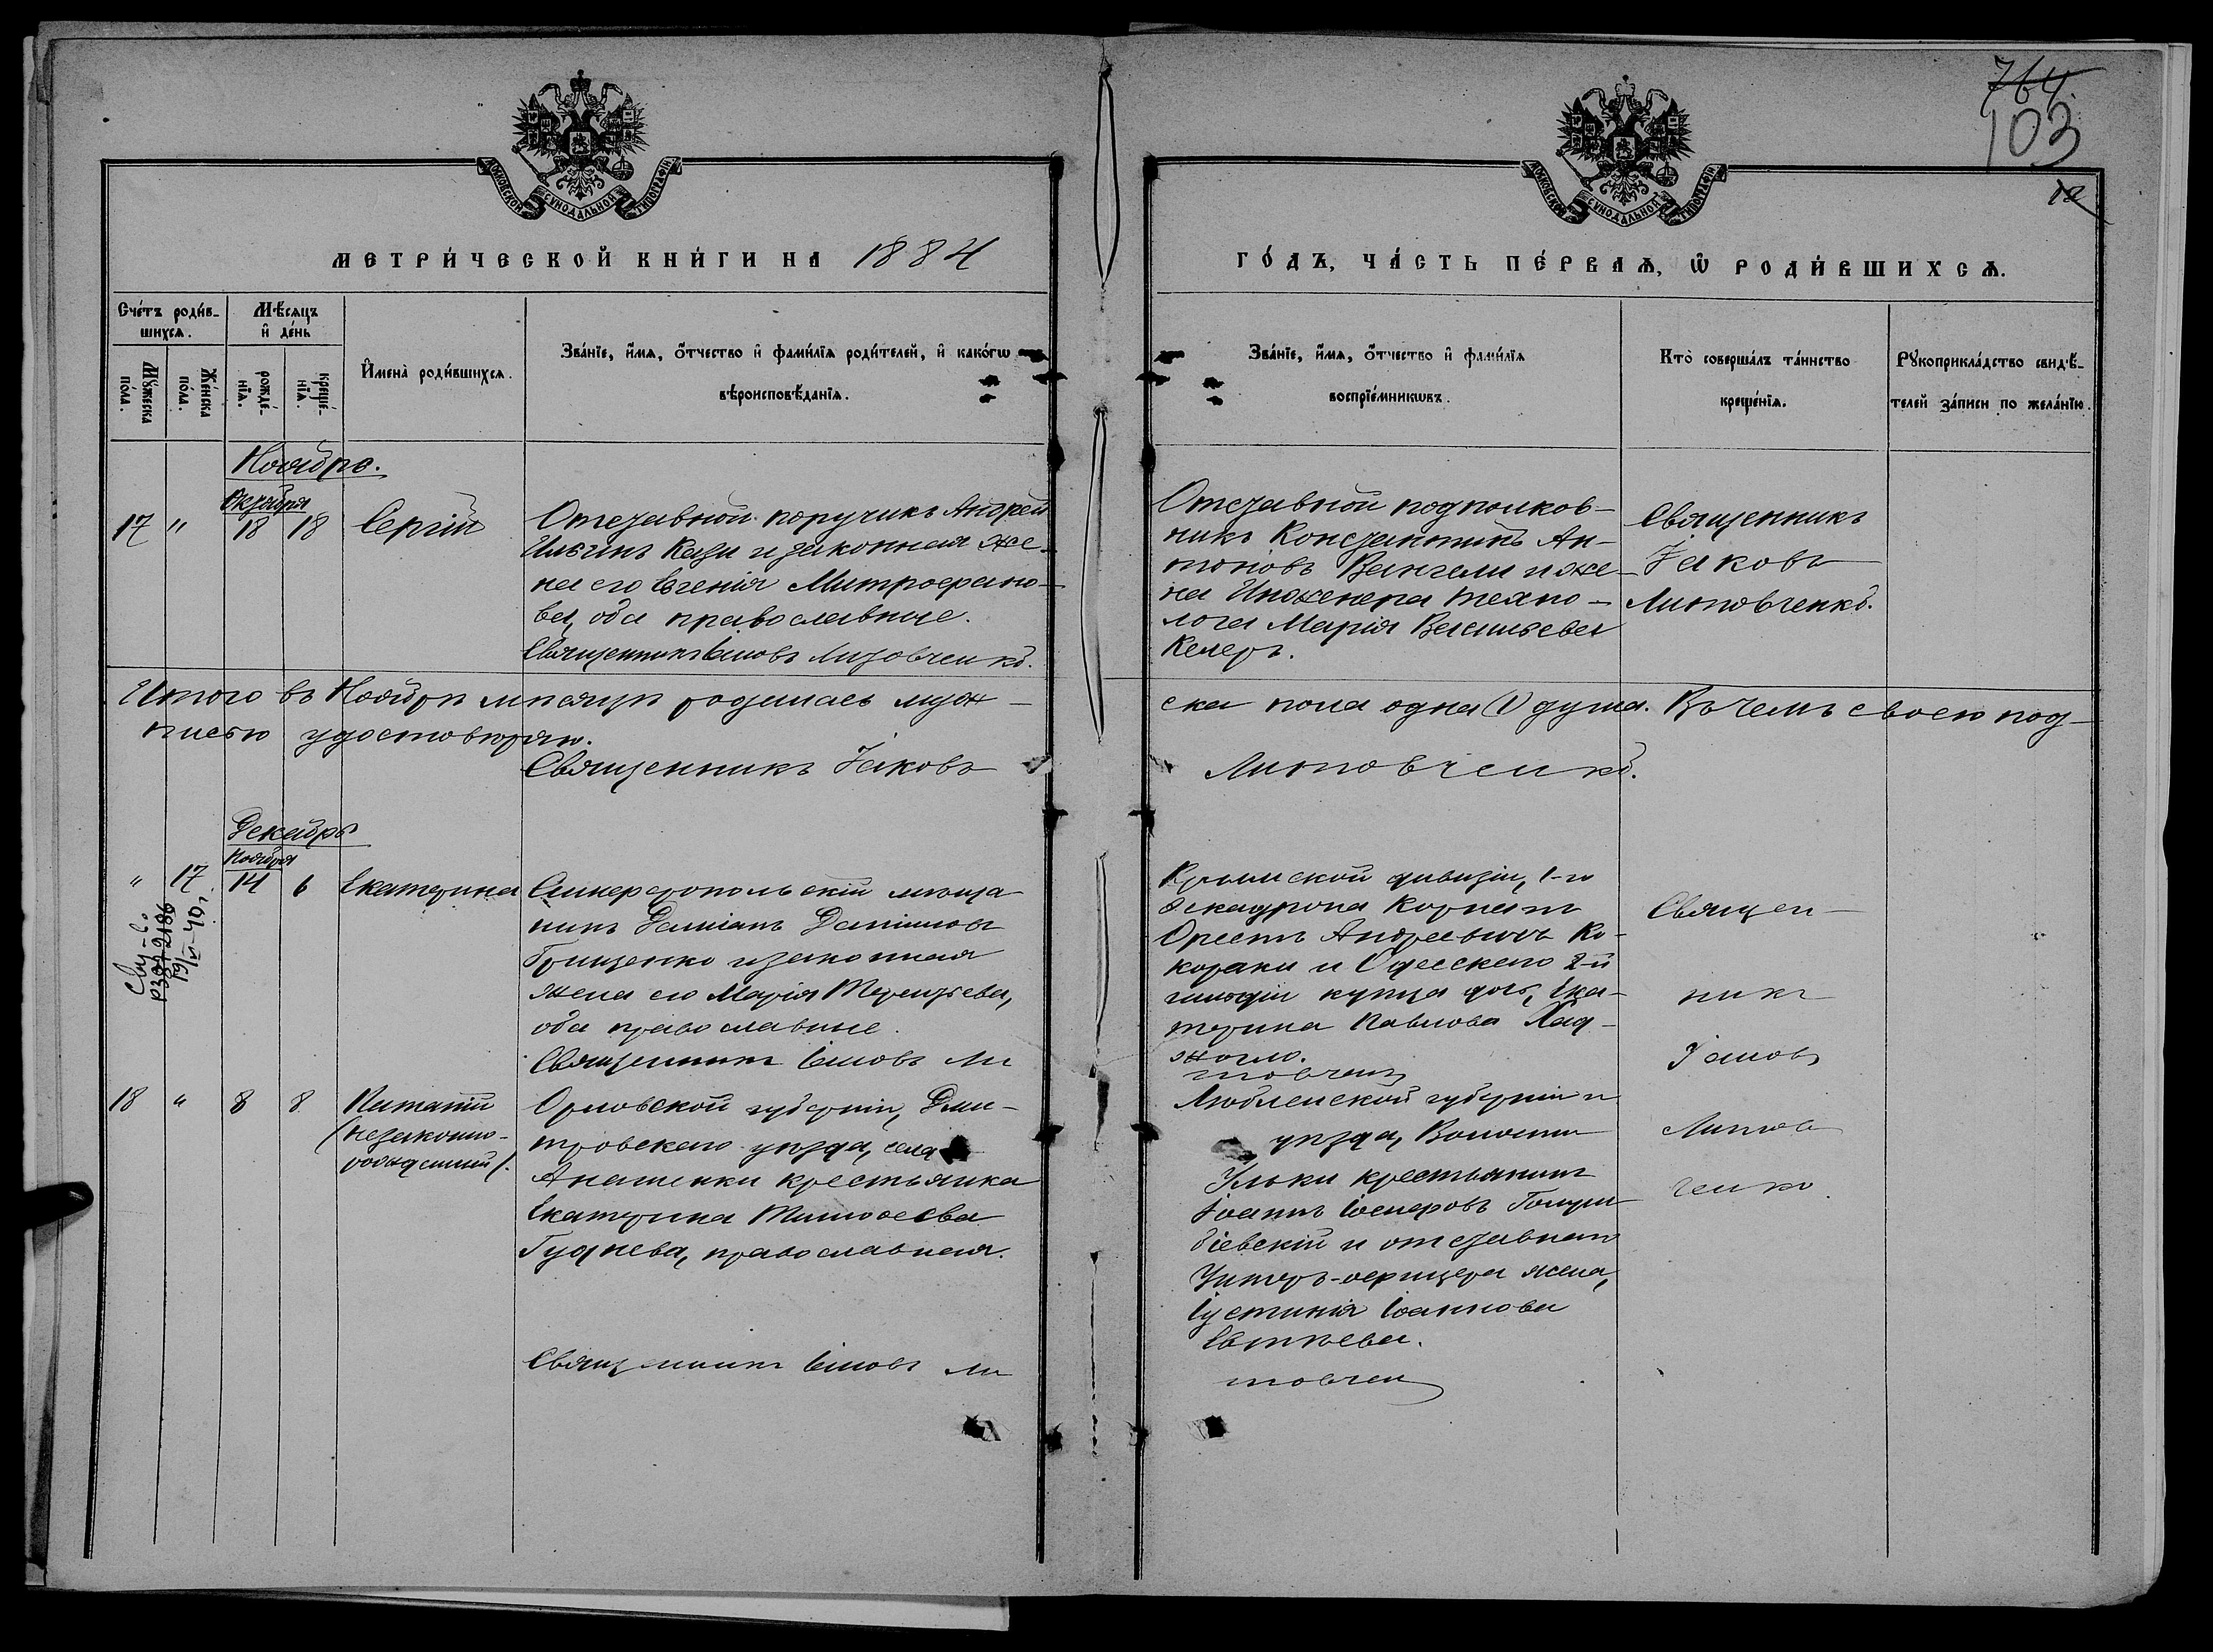 764.
103
МОСКОВСКОЙ СѴНОДАЛЬНОЙ ТИПОГРАФІИ
МОСКОВСКОЙ СѴНОДАЛЬНОЙ ТИПОГРАФІИ
МЕТРИ́ЧЕСКОЙ КНИ́ГИ НА 1884
ГО́ДЪ, ЧА́СТЬ ПЕ́РВАѦ, Ѡ҆ РОДИ́ВШИХСѦ.
Сче́тъ роди́в-
шихсѧ.
Мꙋ́жеска
по́ла.
Же́нска
по́ла.
Мѣ́сяцъ
и҆ де́нь
рожде́-
нїѧ.
креще́-
нїѧ.
И҆мена̀ роди́вшихсѧ.
Зва́нїе, и҆́мѧ, ѻ҆́тчество и҆ фами́лїѧ роди́телей, и҆ како́гѡ
вѣроисповѣ́данїѧ.
Зва́нїе, и҆́мѧ, ѻ҆́тчество и҆ фами́лїѧ
воспрїе́мникѡвъ.
Кто̀ соверша́лъ та́инство
креще́нїѧ.
Рꙋкоприкла́дство свидѣ́-
телей за́писи по жела́нїю.
Ноябрь.
Октября
17 " 18 18 Сергій
Отставной поручикъ Андрей
Ильинъ Кази и законная же-
на его Евгенія Митрофано-
ва, оба православные.
Священникъ Іаковъ Литовченко.
Отставной подполков-
никъ Константинъ Ан-
тоновъ Вангели и же-
на Инженера техно-
лога Марія Васильева
Келеръ.
Священникъ
Іаковъ
Литовченко.
Итого въ Ноябрѣ мѣсяцѣ родилась муж-
ска пола одна (1) душа. Въ чемъ своею под-
писью удостовѣряю.
Священникъ Іаковъ Литовченко.
Декабрь
Ноября
" 17 14 6 Екатерина
Симферопольскій мѣща-
нинъ Даміанъ Даміановъ
Грищенко и законная
жена его Марія Терентьева,
оба православные.
Священникъ Іаковъ Ли
товчен
Крымской дивизіи, 1-го
эскадрона Корнетъ
Орестъ Андреевичъ Ко-
кораки и Одесскаго 2-й
гильдіи купца дочь, Ека-
терина Павлова Хад-
жогло.
Священ-
никъ
Іаковъ
Литов
ченко.
18 " 8 8 Питатій
(незаконно-
рожденный).
Орловской губерніи, Дми-
тровскаго уѣзда, села
Анашенки крестьянка
Екатерина Тимофеева
Гуднева, православная.
Священникъ Іаковъ Ли
товчен
Люблинской губерніи и
уѣзда, Волости
Ульки крестьянинъ
Іоаннъ Іосифовъ
и отставнаго
Унтеръ-офицера жена,
Іустинія Іоаннова